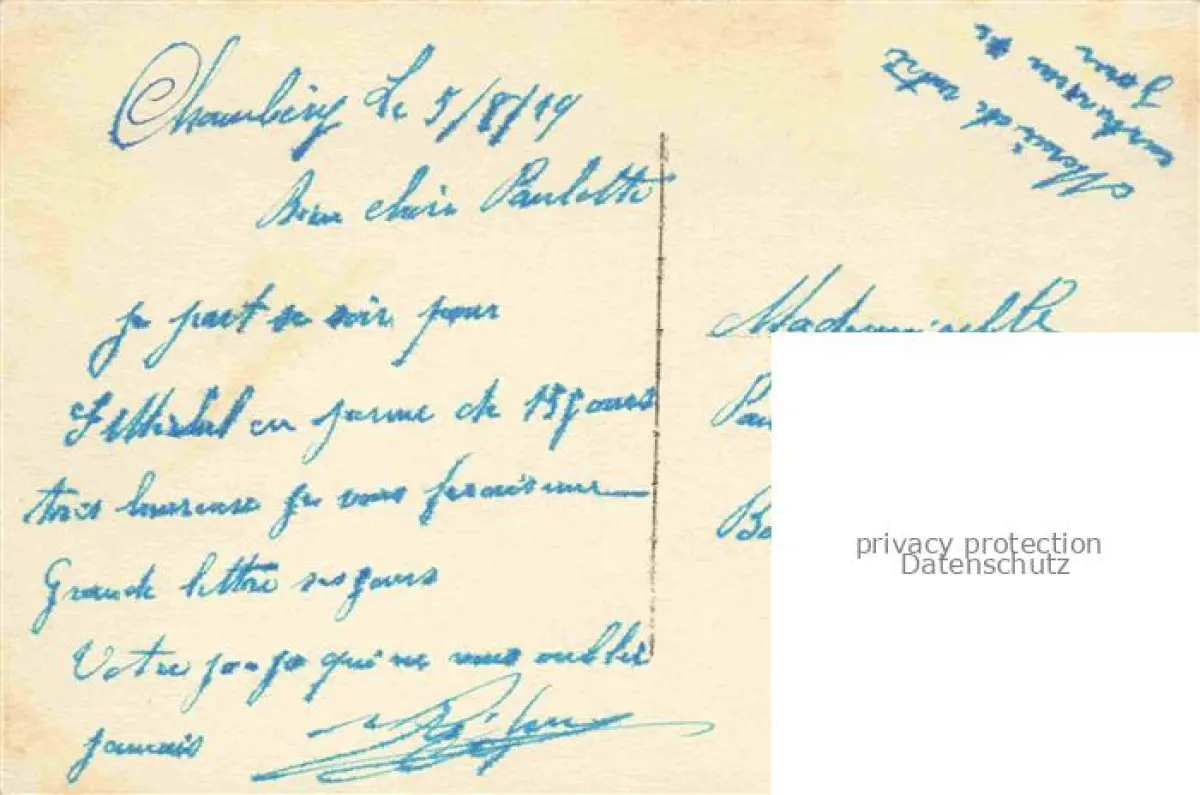 Chambéry Le 5/8/19
Bien cher Paulette
je part se soir pour
St Michel en perme de 15 jours
très heureuse je vous ferais une
Grande lettre ses jours
Votre jo-jo qui ne vous oublie
jamais
Merci de votre
Mademoiselle
privacy protection
Datenschutz